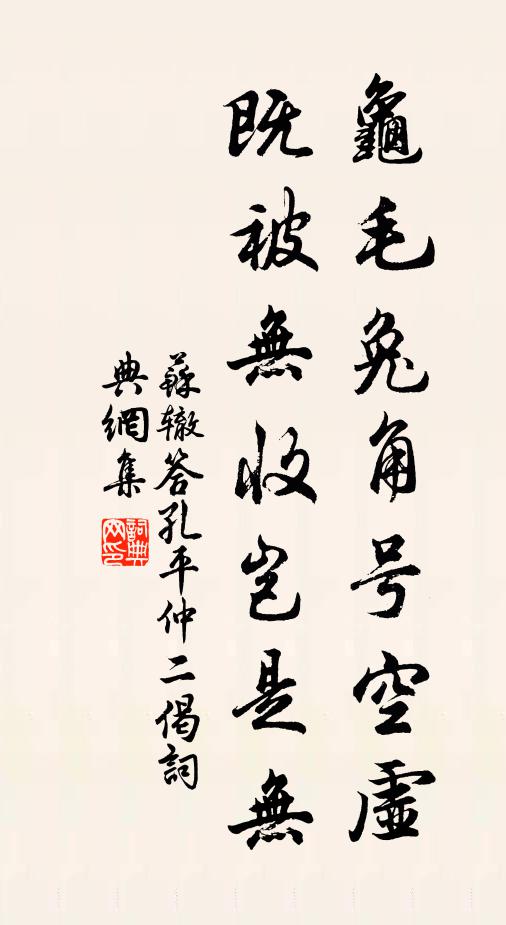 龜毛兔角号空虛
既被無收岂是無
蘇辙答孔平仲二偈詞
典網集
詞典网印